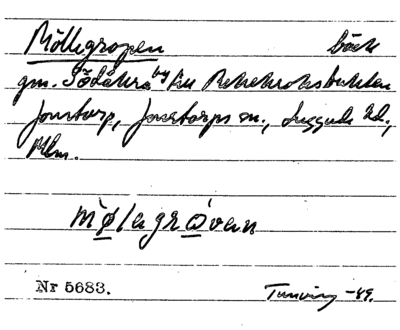 Möllegropen bäck
gm. Södåkra by t.u. Rekekroksbukten
Jonstorp, Jonstorps sn., Luggude hd.,
Mlm.
mølagrøvan
Nr 5683. Tunving -49.